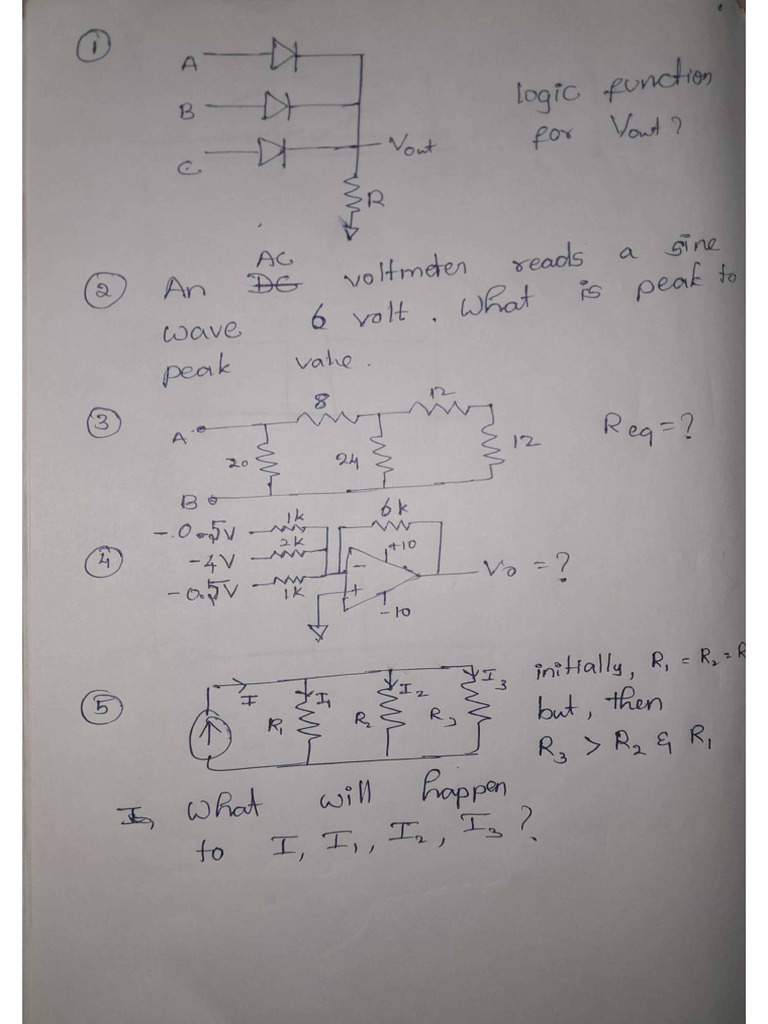 ①
A
B
C
Vout
R
logic function
for Vout?
② An D̶C̶ AC voltmeter reads a sine
wave 6 volt. What is peak to
peak value.
③
A
B
8
12
20
24
12
Req = ?
④
-0.5V
-4V
-0.5V
1k
2k
1k
6k
+10
-
+
-10
Vo = ?
⑤
I
I₁
I₂
I₃
R₁
R₂
R₃
initially, R₁ = R₂ = R
but, then
R₃ > R₂ & R₁
What will happen
to I, I₁, I₂, I₃ ?